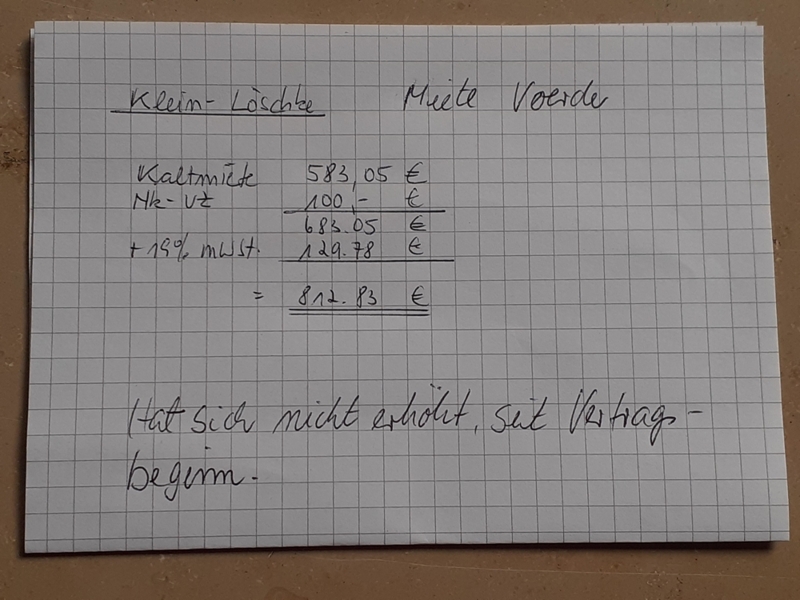 Klein-Löschke Miete Voerde
Kaltmiete 583,05 €
Nk-VZ 100,- €
683.05 €
+ 19% MwSt. 129.78 €
= 812.83 €
Hat sich nicht erhöht, seit Vertrags-
beginn.